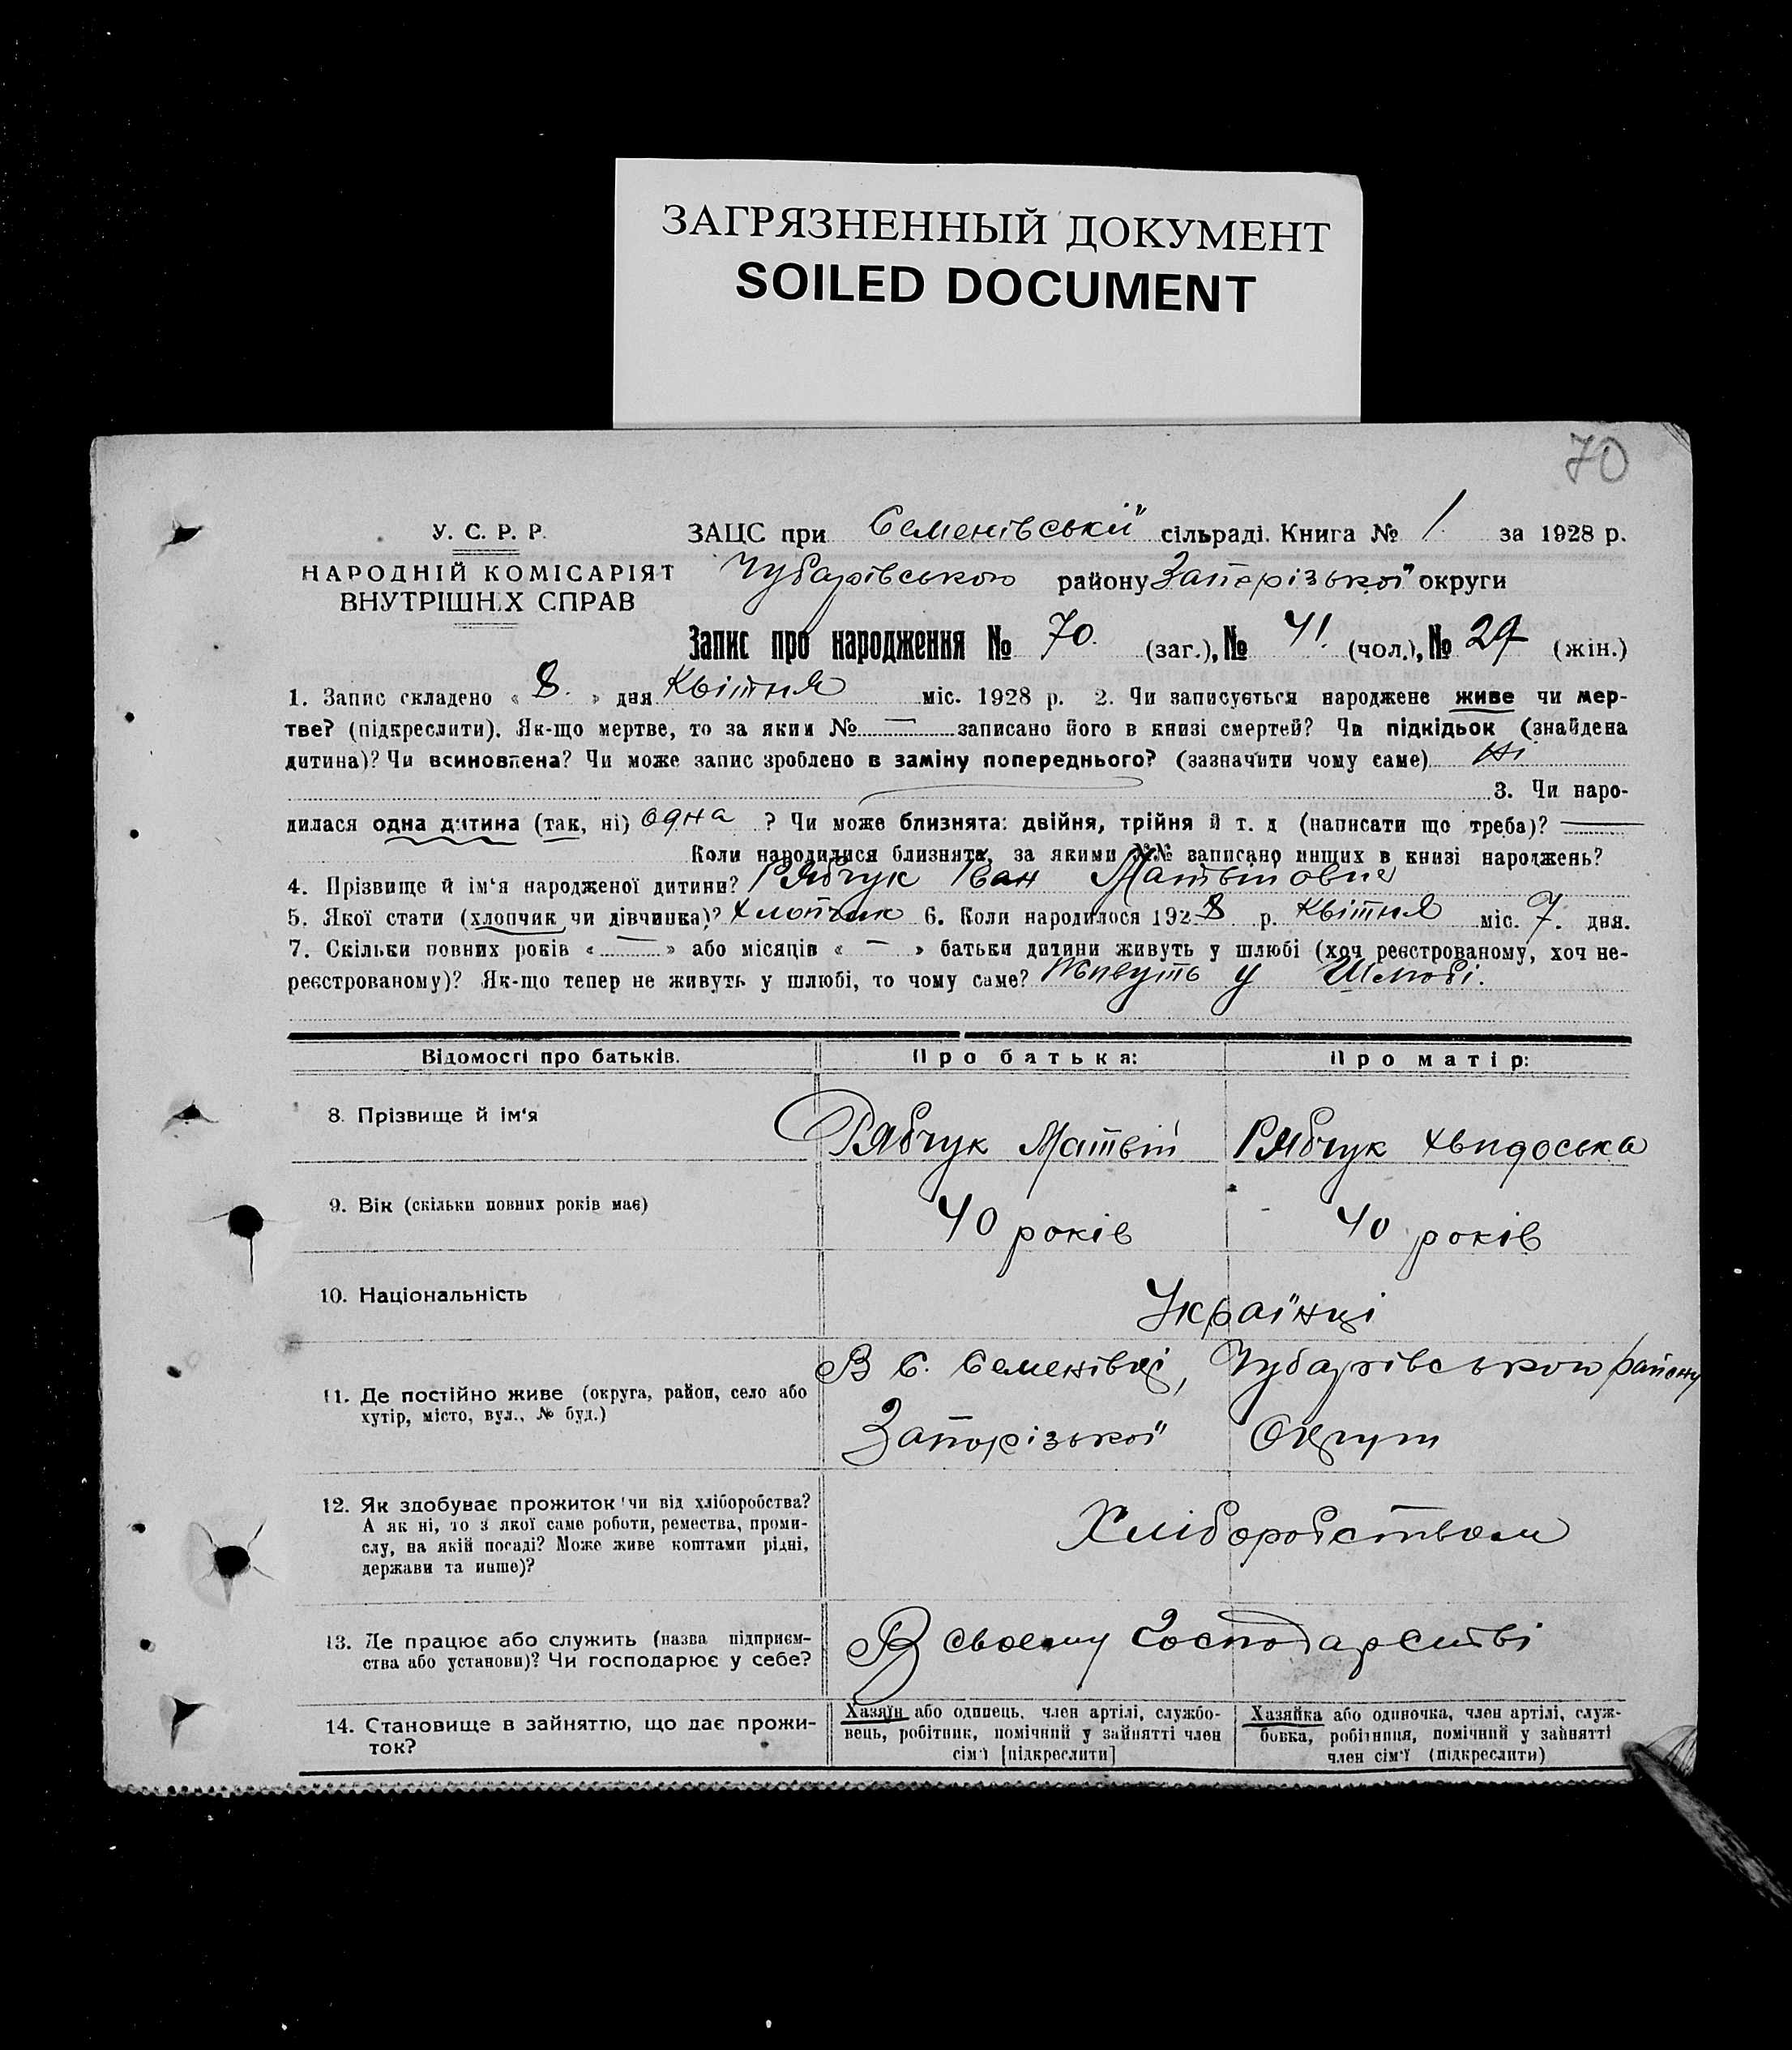 ЗАГРЯЗНЕННЫЙ ДОКУМЕНТ
SOILED DOCUMENT
70
У. С. Р. Р.
НАРОДНІЙ КОМІСАРІЯТ
ВНУТРІШНІХ СПРАВ
ЗАЦС при Семенівській сільраді. Книга № 1 за 1928 р.
Чубарівського району Запорізької округи
Запис про народження № 70 (заг.), № 41 (чол.), № 29 (жін.)
1. Запис складено « 8. » дня Квітня міс. 1928 р. 2. Чи записується народжене живе чи мер-
тве? (підкреслити). Як-що мертве, то за яким № — записано його в книзі смертей? Чи підкідьок (знайдена
дитина)? Чи всиновлена? Чи може запис зроблено в заміну попереднього? (зазначити чому саме) Ні
3. Чи наро-
дилася одна дитина (так, ні) одна ? Чи може близнята: двійня, трійня й т. д (написати що треба)? —
Коли народилися близнята, за якими №№ записано инших в книзі народжень?
4. Прізвище й ім'я народженої дитини? Рябчук Іван Матвійович
5. Якої стати (хлопчик чи дівчинка)? Хлопчик 6. Коли народилося 1928 р. Квітня міс. 7. дня.
7. Скільки повних років « — » або місяців « — » батьки дитини живуть у шлюбі (хоч реєстрованому, хоч не-
реєстрованому)? Як-що тепер не живуть у шлюбі, то чому саме? Живуть у Шлюбі.
Відомості про батьків. Про батька: Про матір:
8. Прізвище й ім'я Рябчук Матвій Рябчук Хвидоська
9. Вік (скільки повних років має) 40 років 40 років
10. Національність Українці
11. Де постійно живе (округа, район, село або
хутір, місто, вул., № буд.)
В с. Семенівці, Чубарівського району
Запорізької Округи
12. Як здобуває прожиток чи від хліборобства?
А як ні, то з якої саме роботи, ремества, проми-
слу, на якій посаді? Може живе коштами рідні,
держави та инше)?
Хліборобством
13. Де працює або служить (назва підприєм-
ства або установи)? Чи господарює у себе?
В своєму Господарстві
14. Становище в зайняттю, що дає прожи-
ток?
Хазяїн або одинець, член артілі, службо-
вець, робітник, помічний у зайнятті член
сім'ї [підкреслити]
Хазяйка або одиночка, член артілі, служ-
бовка, робітниця, помічний у зайнятті
член сім'ї (підкреслити)